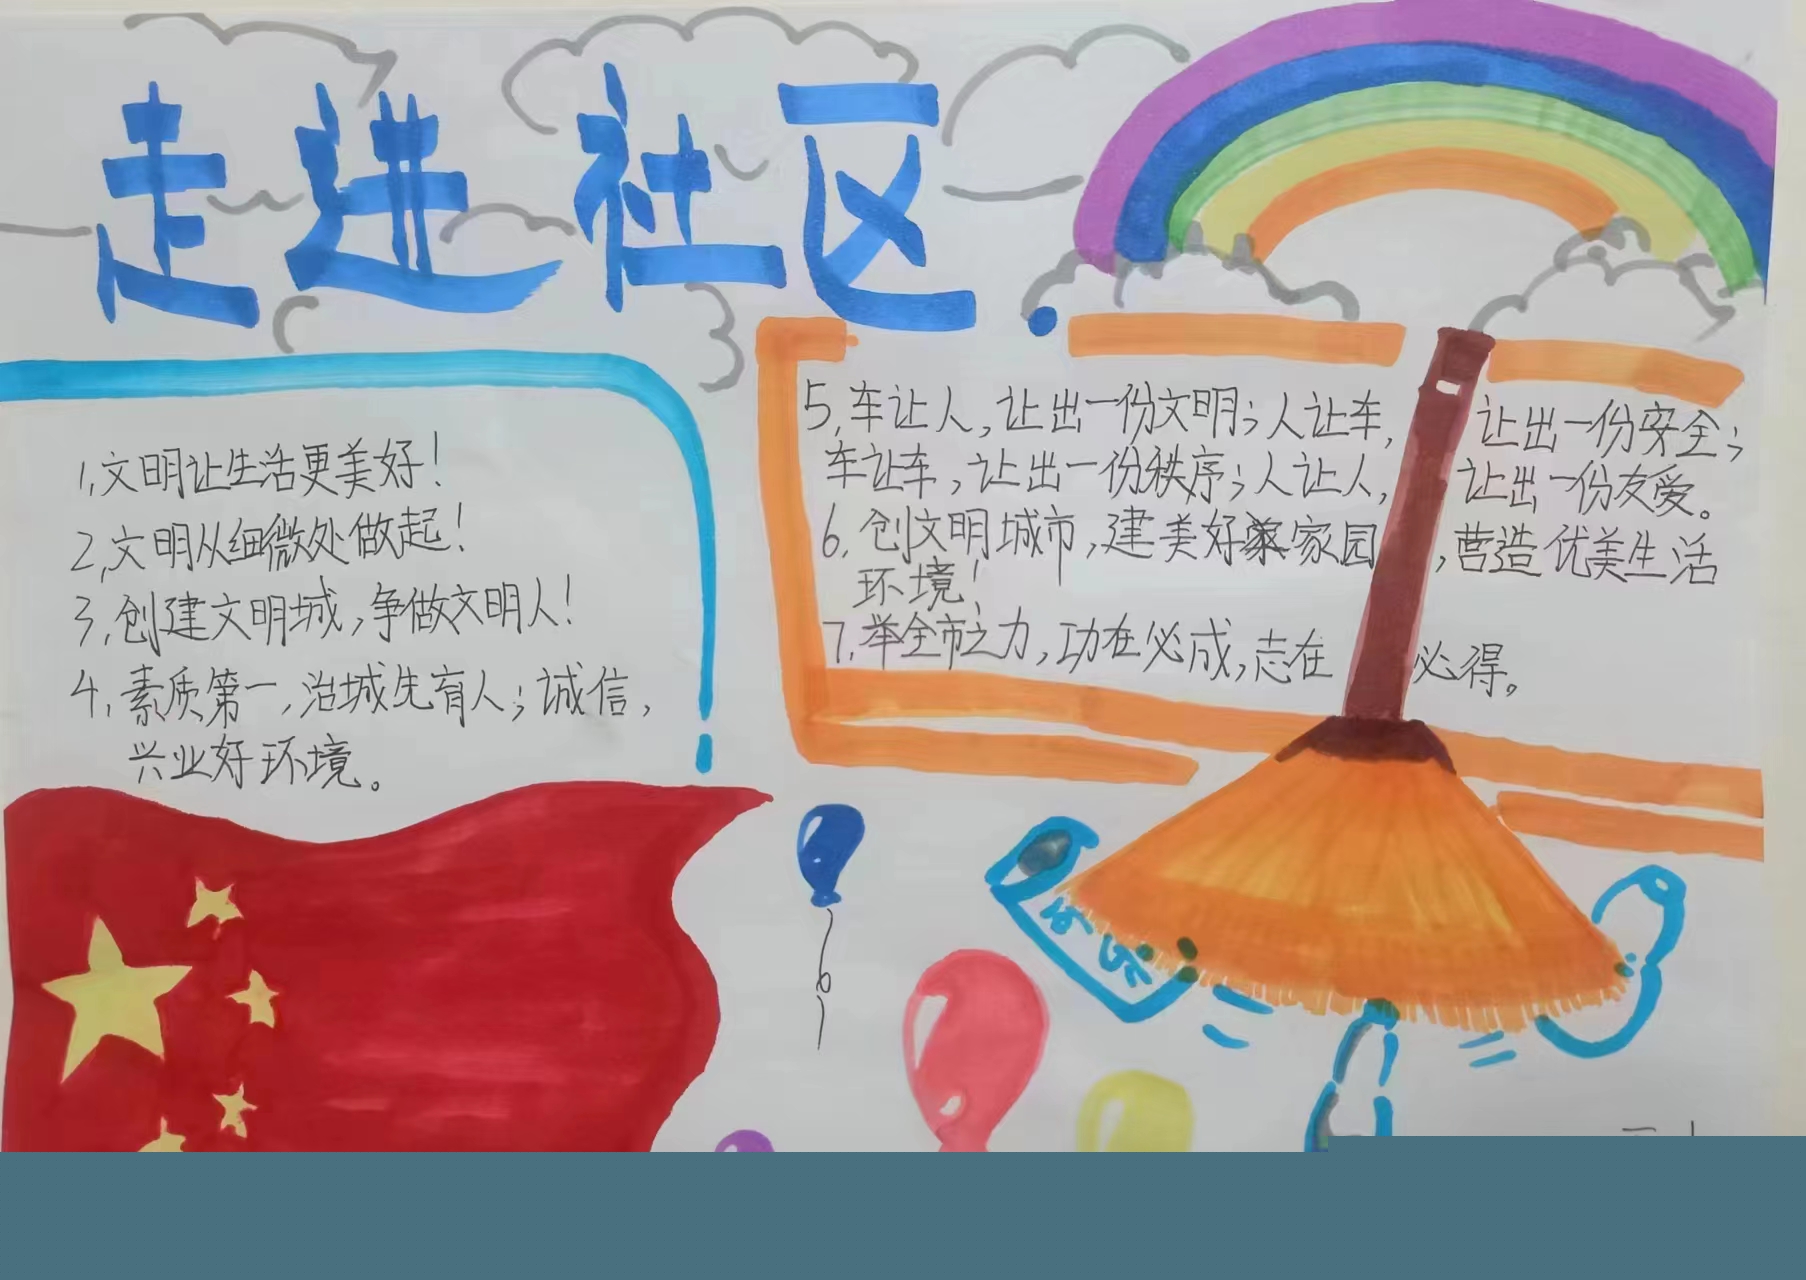 走进社区.
1,文明让生活更美好!
2,文明从细微处做起!
3,创建文明城,争做文明人!
4,素质第一,治城先有人;诚信,
兴业好环境。
5,车让人,让出一份文明;人让车,让出一份安全;
车让车,让出一份秩序;人让人,让出一份友爱。
6,创文明城市,建美好家园,营造优美生活
环境!
7,举全市之力,功在必成,志在必得。